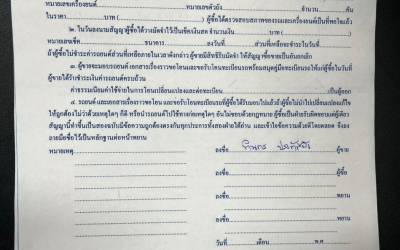 หมายเลขเครื่องยนต์ หมายเลขตัวถัง จำนวน คัน
ในราคา บาท ( ) ผู้ซื้อได้ตรวจสอบสภาพรถยนต์และเครื่องยนต์เป็นที่พอใจแล้ว
๒. ในวันลงนามสัญญาผู้ซื้อได้วางมัดจำไว้เป็นเช็คเงินสด จำนวนเงิน บาท ( )
หมายเลขเช็ค ธนาคาร ลงวันที่ ส่วนที่เหลือจะชำระในวันที่
ถ้าผู้ซื้อไม่ชำระค่ารถยนต์ส่วนที่เหลือภายในเวลาดังกล่าว ผู้ขายมีสิทธิริบมัดจำ ให้สัญญาซื้อขายเป็นอันยกเลิก
๓. ผู้ขายจะมอบรถยนต์ เอกสารเรื่องราวขอโอน และขอรับโอนทะเบียนรถพร้อมสมุดคู่มือทะเบียนรถให้แก่ผู้ซื้อในวันที่
ผู้ขายได้รับชำระเงินค่ารถยนต์ครบถ้วน
ค่าธรรมเนียมค่าใช้จ่ายในการโอนเปลี่ยนแปลงและต่อทะเบียน เป็นผู้ออก
๔. รถยนต์ และเอกสารเรื่องราวขอโอน และขอรับโอนทะเบียนรถที่ผู้ซื้อได้รับมอบไปแล้ว ถ้าผู้ซื้อไม่นำไปเปลี่ยนแปลงแก้ไข
ให้ถูกต้องไม่ว่าด้วยเหตุใดๆ ก็ดี หรือนำรถยนต์ไปใช้ทางก่อเหตุใดๆ อันไม่ชอบด้วยกฎหมาย ผู้ซื้อเป็นฝ่ายรับผิดชอบแต่ผู้เดียว
สัญญานี้ทำขึ้นเป็นสองฉบับมีข้อความถูกต้องตรงกันทุกประการทั้งสองฝ่ายได้อ่าน และเข้าใจข้อความดีโดยตลอด จึงลง
ลายมือชื่อไว้เป็นหลักฐานต่อหน้าพยาน
หมายเหตุ ลงชื่อ ผู้ขาย
ลงชื่อ ผู้ซื้อ
ลงชื่อ พยาน
ลงชื่อ พยาน
วันที่ เดือน พ.ศ.